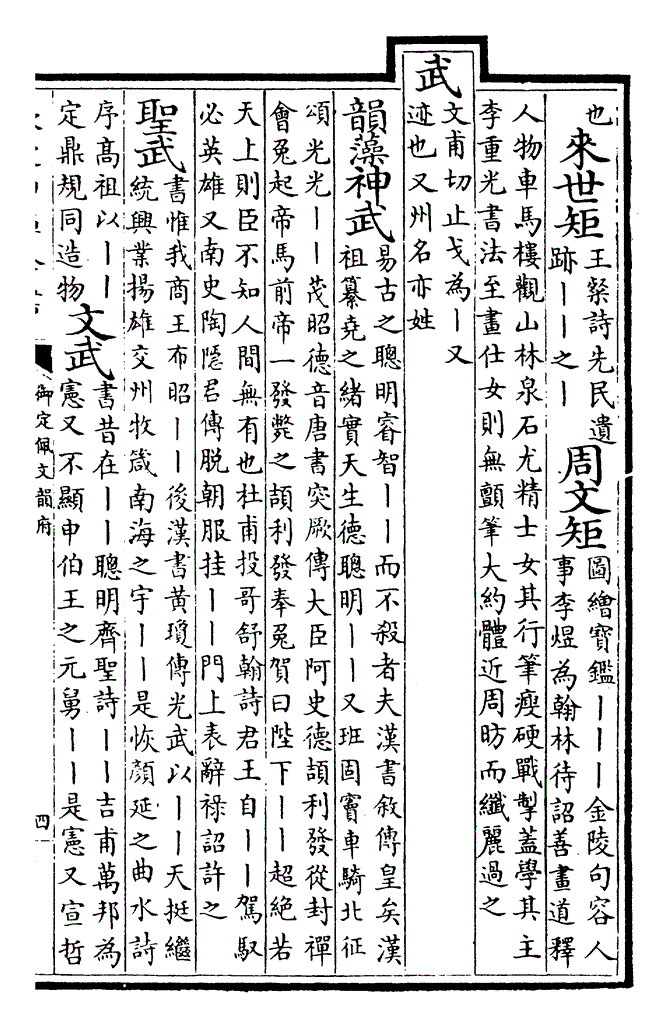 也
來世矩
王粲詩先民遺
跡丨丨之丨
周文矩
圖繪寶鑑丨丨丨金陵句容人
事李煜為翰林待詔善畫道釋
人物車馬樓觀山林泉石尤精士女其行筆瘦硬戰掣蓋學其主
李重光書法至畫仕女則無顫筆大約體近周昉而纖麗過之
武
文甫切止戈為丨又
迹也又州名亦姓
韻藻神武
易古之聰明睿智丨丨而不殺者夫漢書敘傳皇矣漢
祖纂堯之緒實天生德聰明丨丨又班固竇車騎北征
頌光光丨丨茂昭德音唐書突厥傳大臣阿史德頡利發從封禪
會兔起帝馬前帝一發斃之頡利發奉兔賀曰陛下丨丨超絕若
天上則臣不知人間無有也杜甫投哥舒翰詩君王自丨丨駕馭
必英雄又南史陶隱君傳脫朝服挂丨丨門上表辭祿詔許之
聖武
書惟我商王布昭丨丨後漢書黃瓊傳光武以丨丨天挺繼
統興業揚雄交州牧箴南海之宇丨丨是恢顏延之曲水詩
序高祖以丨丨
定鼎規同造物
文武
書昔在丨丨聰明齊聖詩丨丨吉甫萬邦為
憲又不顯申伯王之元舅丨丨是憲又宣哲
御定佩文韻府
四